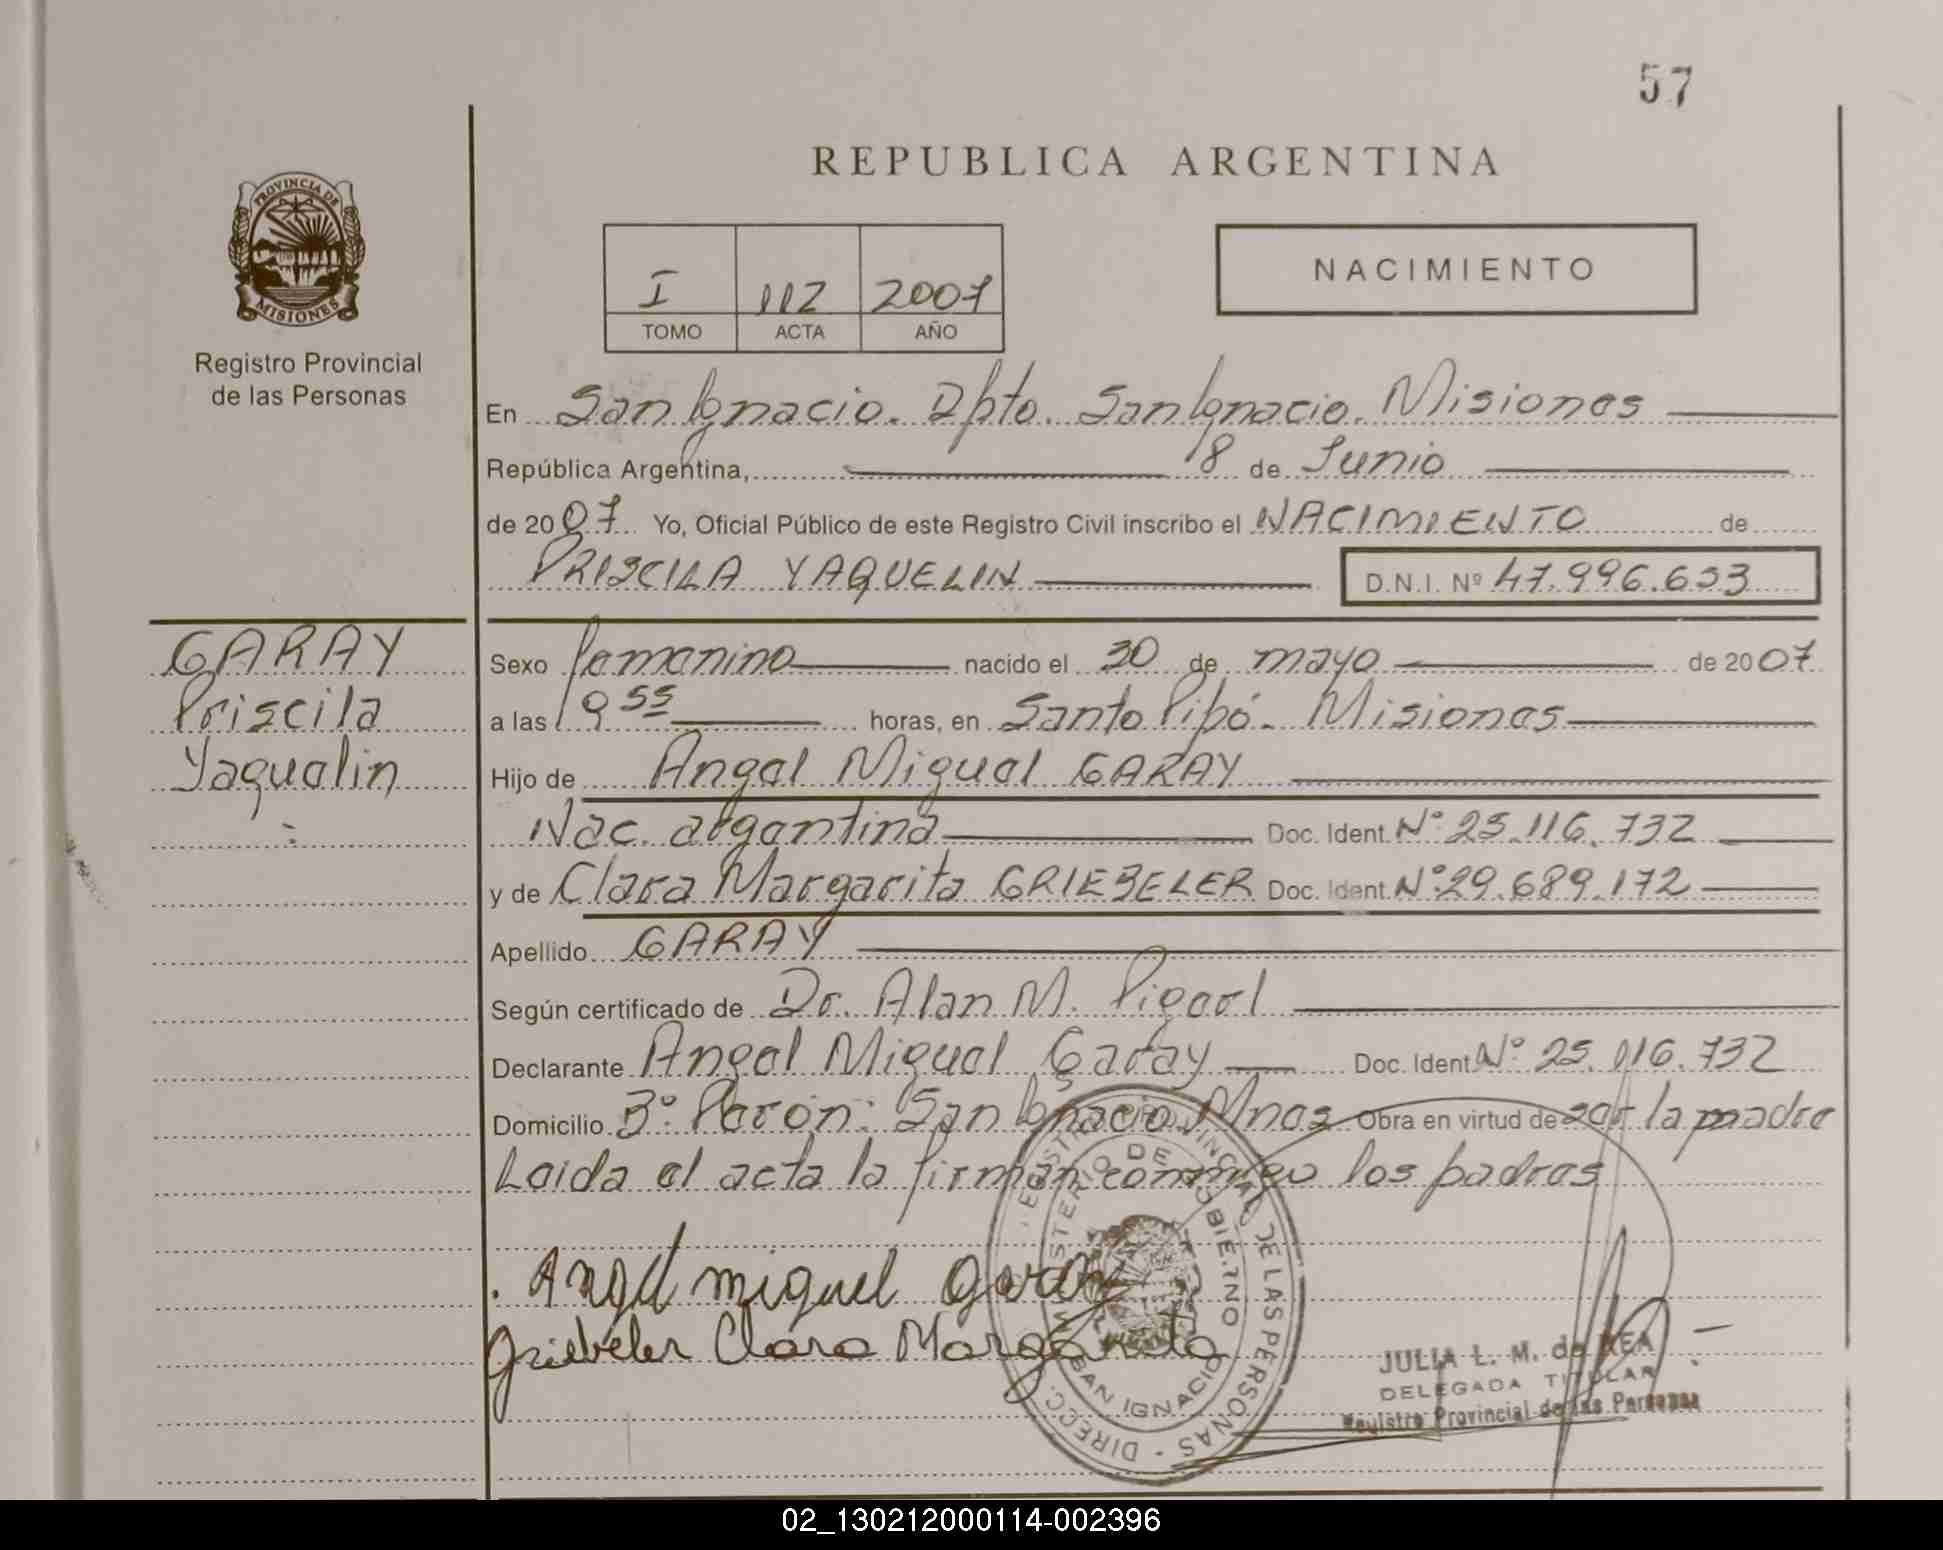 57
REPUBLICA ARGENTINA
PROVINCIA DE
MISIONES
Registro Provincial
de las Personas
I 112 2007
TOMO ACTA AÑO
NACIMIENTO
En San Ignacio. Dpto. San Ignacio. Misiones
República Argentina, 8 de Junio
de 2007 Yo, Oficial Público de este Registro Civil inscribo el NACIMIENTO de
PRISCILA YAQUELIN D.N.I. Nº 47.996.633
GARAY
Priscila
Yaquelin
Sexo femenino nacido el 30 de mayo de 2007
a las 19 55 horas, en Santo Pipó. Misiones
Hijo de Angel Miguel GARAY
Nac. argentina Doc. Ident. Nº 25.116.732
y de Clara Margarita GRIEBELER Doc. Ident. Nº 29.689.172
Apellido GARAY
Según certificado de Dr. Alan M.
Declarante Angel Miguel Garay Doc. Ident. Nº 25.116.732
Domicilio Bº Perón. San Ignacio Mnes Obra en virtud de ser la madre
Leida el acta la firman conmigo los padres
Angel miguel garay
Griebeler Clara Margarita
DIRECC. REGISTRO PROVINCIAL DE LAS PERSONAS
MINISTERIO DE GOBIERNO
SAN IGNACIO
JULIA L. M. de REA
DELEGADA TITULAR
Registro Provincial de las Personas
02_130212000114-002396